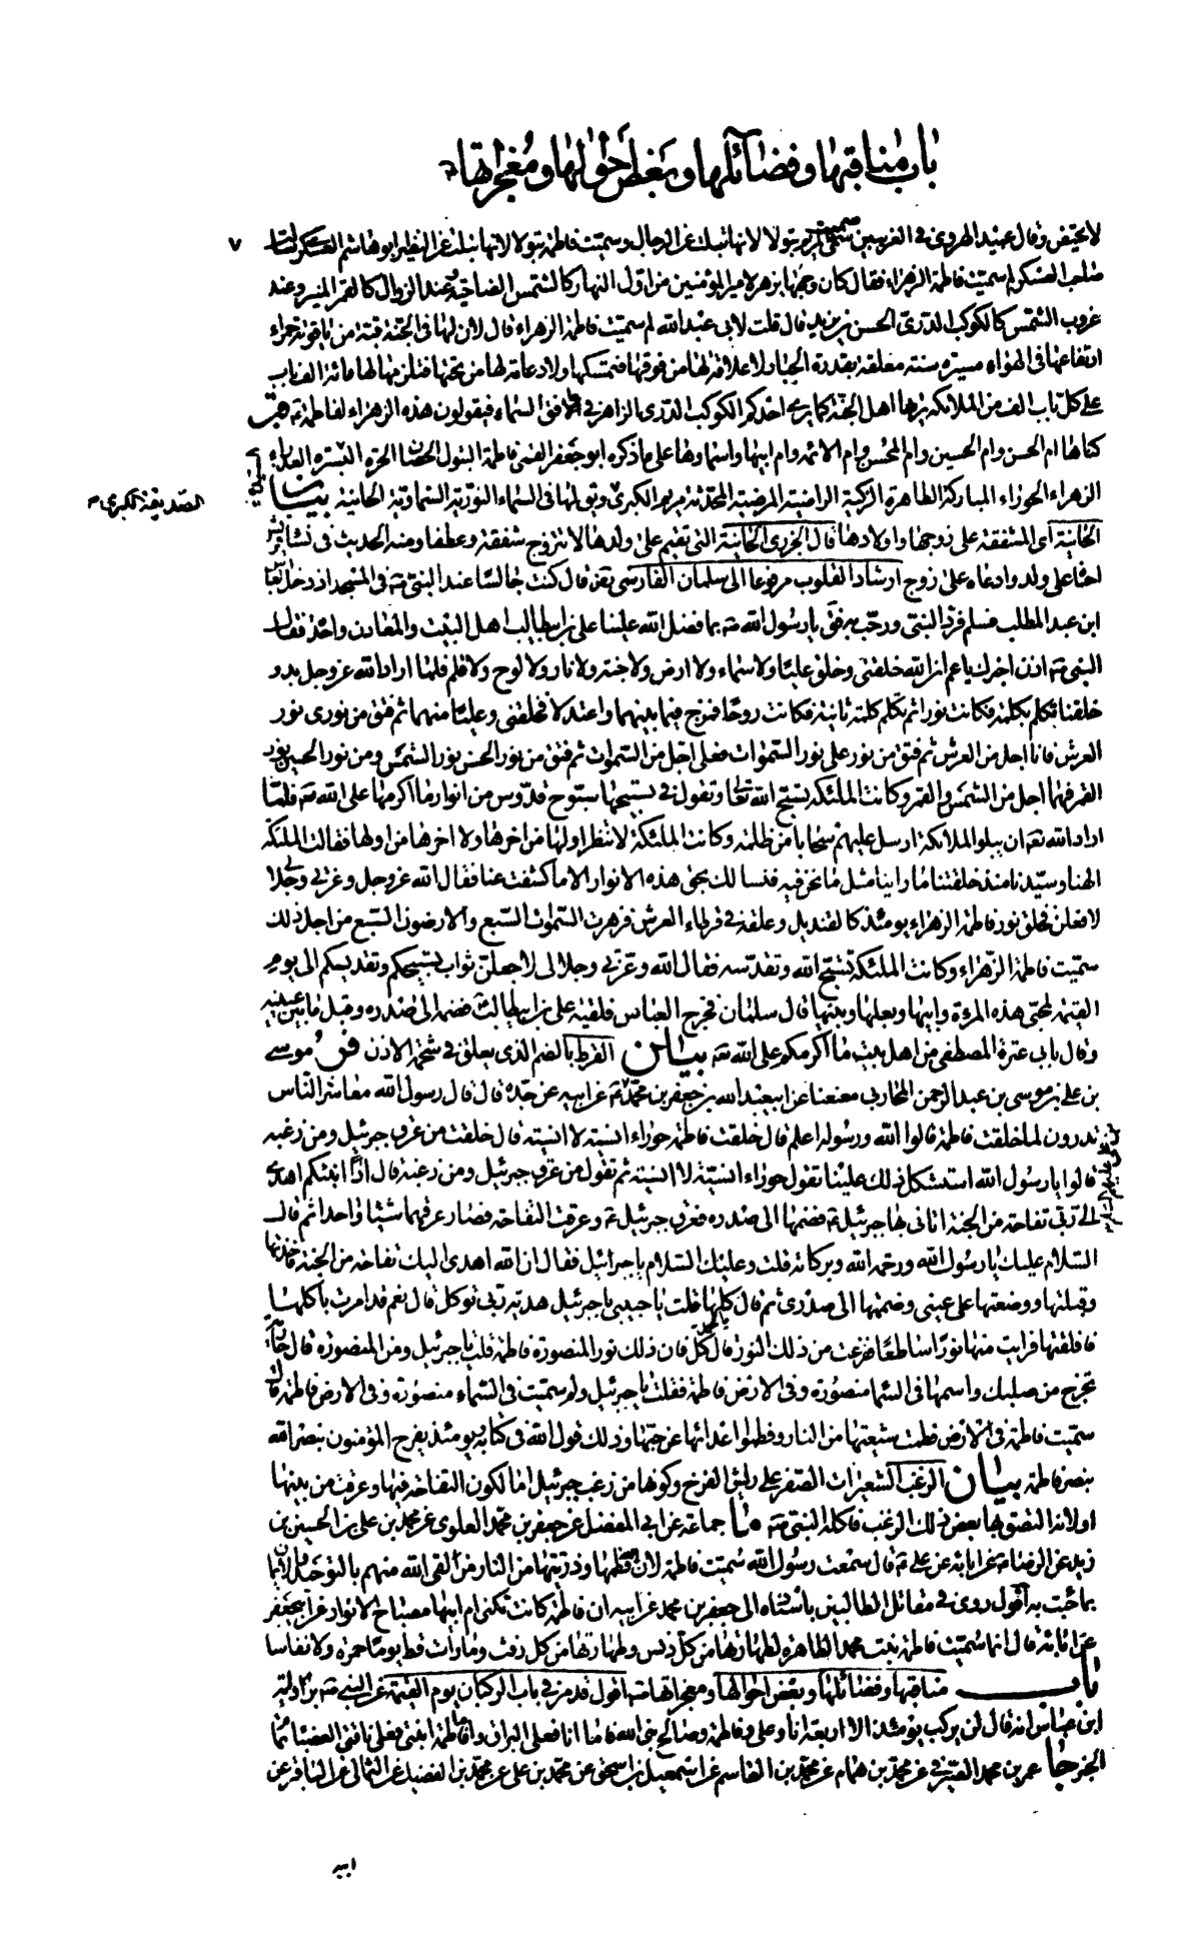 باب مناقبها وفضائلها وبعض احوالها ومعجزاتها
٧
لا تحيض وقال عبيد الهروى فى الغريبين سميت مريم بتولا لانها بتلت عن الرجال وسميت فاطمة بتولا لانها بتلت عن النظير ابو هاشم العسكرى سالت
صاحب العسكر لم سميت فاطمة الزهراء فقال كان وجهها يزهر لامير المؤمنين من اول النهار كالشمس الضاحية وعند الزوال كالقمر المنير وعند
غروب الشمس كالكوكب الدرى الحسن بن يزيد قال قلت لابى عبد الله لم سميت فاطمة الزهراء قال لان لها فى الجنة قبة من ياقوتة حمراء
ارتفاعها فى الهواء مسيرة سنة معلقة بقدرة الجبار لا علاقة لها من فوقها فتمسكها ولا دعامة لها من تحتها فتلزمها لها مائة الف باب
على كل باب الف من الملائكة يراها اهل الجنة كما يرى احدكم الكوكب الدرى الزاهر فى افق السماء فيقولون هذه الزهراء لفاطمة
كناها ام الحسن وام الحسين وام المحسن وام الائمة وام ابيها واسماؤها على ما ذكره ابو جعفر القمى فاطمة البتول الحصان الحرة السيدة العذراء
الزهراء الحوراء المباركة الطاهرة الزكية الراضية المرضية المحدثة مريم الكبرى ويقال لها فى السماء النورية السماوية الحانية بيان
الصديقة الكبرى
الحانية اى المشفقة على زوجها واولادها قال الجزرى الحانية التى تقيم على ولدها لا تتزوج شفقة وعطفا ومنه الحديث فى نساء قريش
احناه على ولد وارعاه على زوج ارشاد القلوب مرفوعا الى سلمان الفارسى قال كنت جالسا عند النبى فى المسجد اذ دخل العباس
ابن عبد المطلب فسلم فرد النبى ورحب به فقال يا رسول الله بما فضل الله علينا على بن ابيطالب اهل البيت والمعادن واحدة فقال
النبى اذن اخبرك يا عم ان الله خلقنى وخلق عليا ولا سماء ولا ارض ولا جنة ولا نار ولا لوح ولا قلم فلما اراد الله عز وجل بدو
خلقنا تكلم بكلمة فكانت نورا ثم تكلم كلمة ثانية فكانت روحا فمزج فيما بينهما واعتدلا فخلقنى وعليا منهما ثم فتق من نورى نور
العرش فانا اجل من العرش ثم فتق من نور على نور السموات فعلى اجل من السموات ثم فتق من نور الحسن نور الشمس ومن نور الحسين نور
القمر فهما اجل من الشمس والقمر وكانت الملئكة تسبح الله تعالى وتقول فى تسبيحها سبوح قدوس من انوار ما اكرمها على الله فلما
اراد الله ان يبلو الملائكة ارسل عليهم سحابا من ظلمة وكانت الملئكة لا تنظر اولها من اخرها ولا اخرها من اولها فقالت الملئكة
الهنا وسيدنا منذ خلقتنا ما راينا مثل ما نحن فيه فنسالك بحق هذه الانوار الا ما كشفت عنا فقال الله عز وجل وعزتى وجلالى
لافعلن فخلق نور فاطمة الزهراء يومئذ كالقنديل وعلقه فى قرط العرش فزهرت السموات السبع والارضون السبع من اجل ذلك
سميت فاطمة الزهراء وكانت الملئكة تسبح الله وتقدسه فقال الله وعزتى وجلالى لاجعلن ثواب تسبيحكم وتقديسكم الى يوم
القيمة لمحبى هذه المرءة وابيها وبعلها وبنيها قال سلمان فخرج العباس فلقيه على بن ابيطالب فضمه الى صدره وقبل ما بين عينيه
وقال بابى عترة المصطفى من اهل بيت ما اكرمكم على الله بيان القرط بالضم الذى يعلق فى شحمة الاذن فر موسى
بن على بن موسى بن عبد الرحمن المحاربى معنعنا عن ابيعبد الله جعفر بن محمد عن ابيه عن جده قال قال رسول الله معاشر الناس
تدرون لما خلقت فاطمة قالوا الله ورسوله اعلم قال خلقت فاطمة حوراء انسية لا انسية قال خلقت من عرق جبرئيل ومن زغبه
قالوا يا رسول الله استشكل ذلك علينا تقول حوراء انسية لا انسية ثم تقول من عرق جبرئيل ومن زغبه قال اذا انبئكم اهدى
الى ربى تفاحة من الجنة اتانى بها جبرئيل فضمها الى صدره فعرق جبرئيل وعرقت التفاحة فصار عرقهما شيئا واحدا ثم قال
السلام عليك يا رسول الله ورحمة الله وبركاته قلت وعليك السلام يا جبرائيل فقال ان الله اهدى اليك تفاحة من الجنة فاخذتها
وقبلتها ووضعتها على عينى وضممتها الى صدرى ثم قال يا محمد كلها قلت يا حبيبى يا جبرئيل هدية ربى توكل قال نعم قد امرت باكلها
فافلقتها فرايت منها نورا ساطعا فزعت من ذلك النور قال كل فان ذلك نور المنصورة فاطمة قلت يا جبرئيل ومن المنصورة قال جارية
تخرج من صلبك واسمها فى السماء منصورة وفى الارض فاطمة فقلت يا جبرئيل ولم سميت فى السماء منصورة وفى الارض فاطمة قال
سميت فاطمة فى الارض فطمت شيعتها من النار وفطموا اعدائها عن حبها وذلك قول الله فى كتابه يومئذ يفرح المؤمنون بنصر الله
بنصر فاطمة بيان الزغب الشعيرات الصفر على ريش الفرخ وكونها من زغب جبرئيل اما لكون التفاحة فيها وعرقت من بينها
او لانه التصق بها بعض ذلك الزغب فاكله النبى ما جماعة عن ابى المفضل عن جعفر بن محمد العلوى عن محمد بن على بن الحسين بن
زيد عن الرضا عن ابائه عن على قال سمعت رسول الله سميت فاطمة لان الله فطمها وذريتها من النار من لقى الله منهم بالتوحيد والايمان
بما جئت به اقول روى فى مقاتل الطالبيين باسناده الى جعفر بن محمد عن ابيه ان فاطمة كانت تكنى ام ابيها مصباح الانوار عن ابيجعفر
عن ابائه قال انما سميت فاطمة بنت محمد الطاهرة لطهارتها من كل دنس وطهارتها من كل رفث وما رات قط يوما حمرة ولا نفاسا
باب مناقبها وفضائلها وبعض احوالها ومعجزاتها اقول قد مر فى باب الركبان يوم القيمة عن النبى برواية
ابن عباس انه قال لن يركب يومئذ الا اربعة انا وعلى وفاطمة وصالح نبى الله فاما انا فعلى البراق واما فاطمة ابنتى فعلى ناقتى العضباء تمام
الخبر جا عمر بن محمد الصيرفى عن محمد بن همام عن محمد بن القاسم عن اسمعيل بن اسحق عن محمد بن على عن محمد بن الفضيل عن الثمالى عن الباقر عن
ابيه